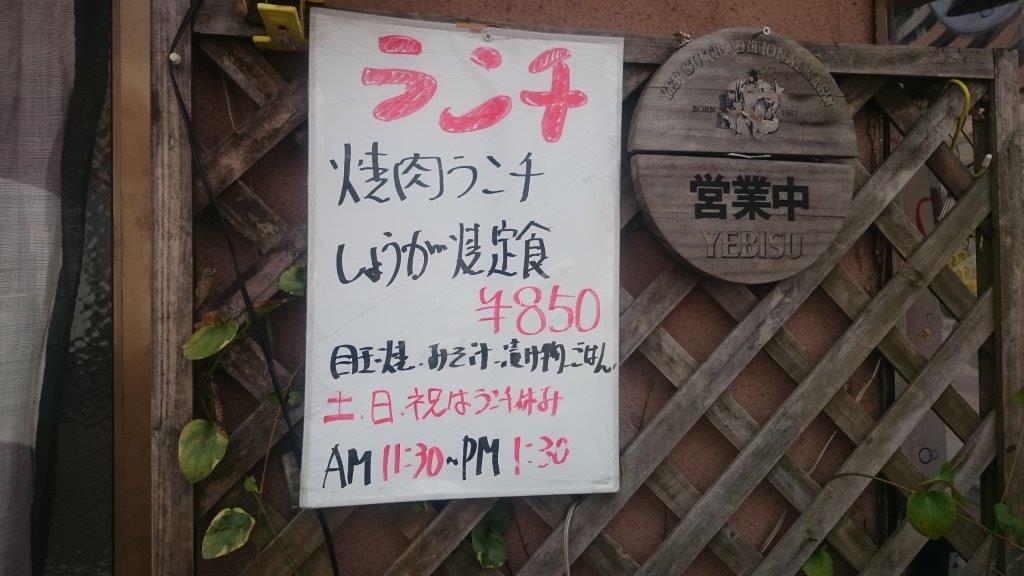 ランチ
焼肉ランチ
しょうが焼定食
¥850
目玉焼.みそ汁.漬け物.ごはん.
土.日.祝はランチ休み
AM 11:30~PM 1:30
BORN 1887
営業中
YEBISU